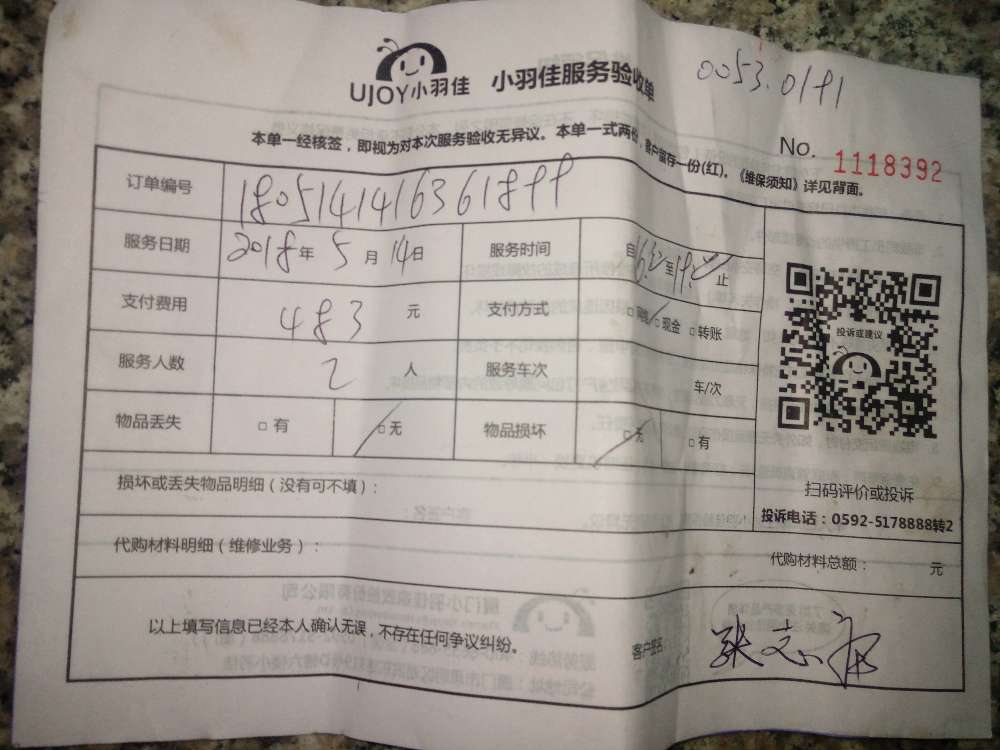 UJOY小羽佳 小羽佳服务验收单
0053.0191
本单一经核签，即视为对本次服务验收无异议。本单一式两份，客户留存一份(红)。《维保须知》详见背面。
No. 1118392
订单编号 180514141636189
服务日期 2018年 5 月 14日 服务时间 自 至 止
支付费用 483 元 支付方式 □ □现金 □转账
服务人数 2 人 服务车次 车/次
物品丢失 □有 □无 物品损坏 □无 □有
投诉或建议
扫码评价或投诉
投诉电话：0592-5178888转2
损坏或丢失物品明细（没有可不填）：
代购材料明细（维修业务）： 代购材料总额： 元
以上填写信息已经本人确认无误，不存在任何争议纠纷。 客户签名 张志